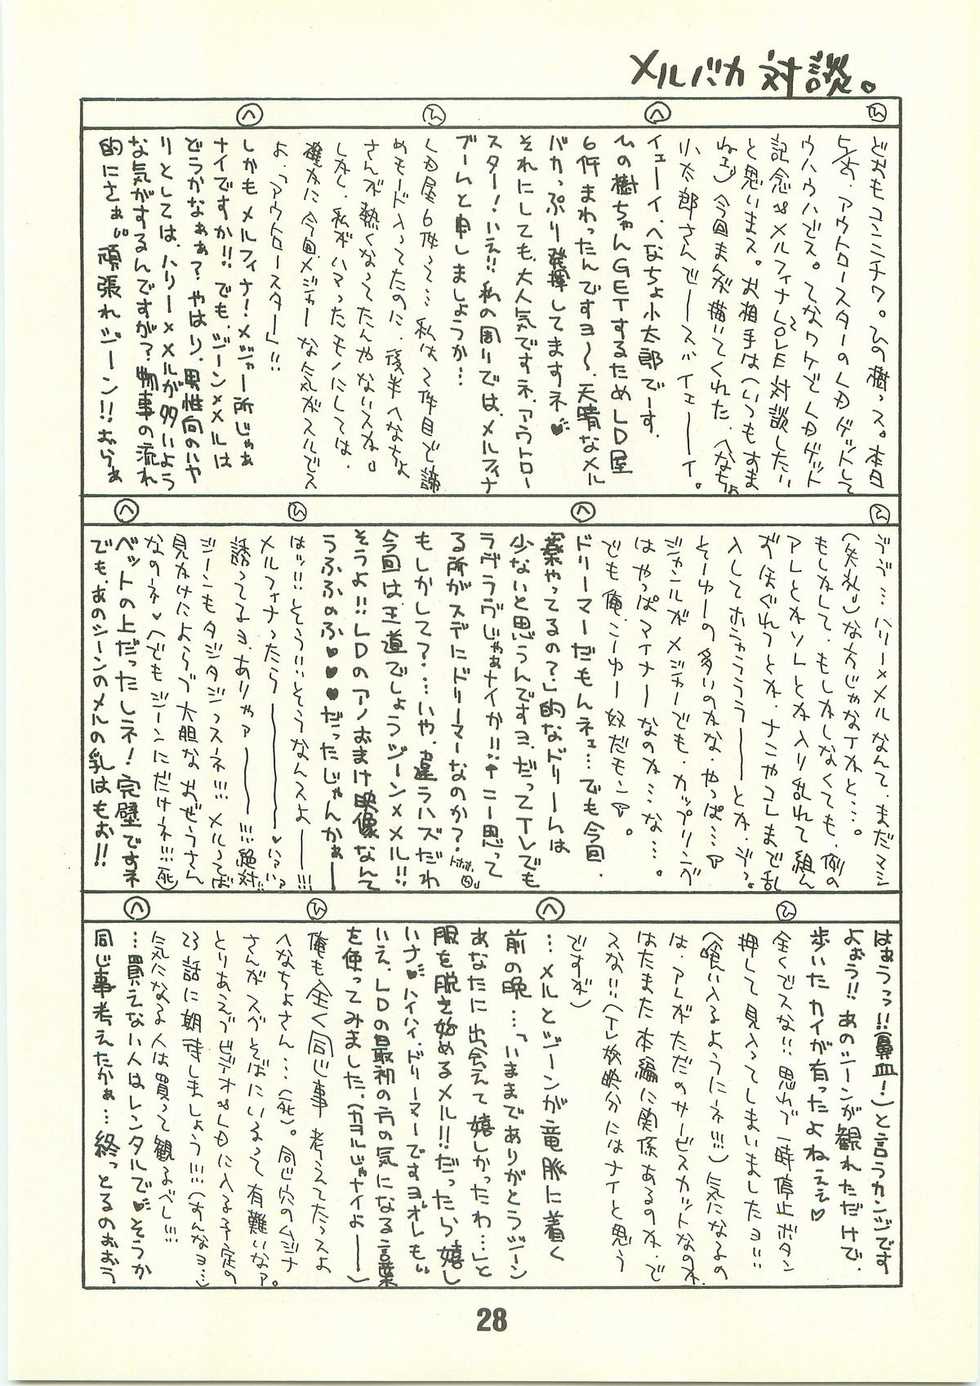 メルバカ対談。
ひ
どおもコンニチワ。ひの樹っス。本日
5/25、アウトロースターのLDゲットして
ウハウハでス。てなワケでLDゲット
記念♂メルフィナLOVE対談したい
と思いまス。お相手は(いつもすま
ねェ)今回まんが描いてくれた、へなちょ
小太郎さんでースバイェーーイ。
へ
イェーイ、へなちょ小太郎でーす。
ひの樹ちゃんGETするためLD屋
6件まわったんですヨ〜、天晴なメル
バカっぷり発揮してますネ♥
それにしても、大人気ですネ、アウトロー
スター!いえ!!私の周りでは、メルフィナ
ブームと申しましょうか…
ひ
LD屋6件って…私は2件目で諦
めモード入ってたのに 後半 へなちょ
さんが熱くなってたんやないスか。
しかし、私がハマったモノにしては、
確かに今回メジャーな気がスルでス
よ、「アウトロースター」!!
へ
しかもメルフィナ!メジャー所じゃぁ
ナイですか!!でも、ジーン×メルは
どうかなぁぁ?やはり、男性向のハヤ
リとしては、ハリー×メルが多いよう
な気がするんですが?物事の流れ
的にさぁ…頑張れジーン!!おらぁ
ひ
うう…ハリー×メルなんて、まだマシ
(失礼)な方じゃないかと…。
もしかして、もしかしなくても、例の
アレとかソレとか入り乱れて組ん
ずほぐれつとか、ナニやコレまで乱
入してホニャララーーとか、どっ。
そーゆーの多いのかな、やっぱ…
ジャンルがメジャーでも、カップリング
はやっぱマイナーなのか…な…。
でも俺、こーゆー奴だモン♡。
へ
ドリーマーだもんネェ…でも今回、
「薬やってるの?」的なドリームは
少ないと思うんですヨ、だってTVでも
ラヴラヴじゃぁナイか!!←こー思って
る所がスデにドリーマーなのか?
もしかしてて?…いや、違うハズだわ
今回は王道でしょうジーン×メル!!
そうよ!!LDのアノおまけ映像なんて
うふふのふ♥♥♥だったじゃんかぁー
ひ
はッ!!そうッ!!そうなんスよーー!!!
メルフィナったらーーーーー♥
誘ってるヨ、ありゃァーーー!!!絶対!!
ジーンもタジタジっスネ!!!メルってば
見かけによらず大胆なおぜうさん
なのネ♥へでもジーンにだけネ!!!(死)
へ
ベットの上だったしネ!完璧ですネ
でも、あのシーンのメルの乳はもぉ!!
はぁうっ!!(鼻血!)と言うカンジです
よぉう!!あのシーンが観れただけで、
歩いたカイが有ったよねぇぇ♡
ひ
全くでスな!!思わず一時停止ボタン
押して見入ってしまいましたヨ!!
(喰い入るようにネ!!!)気になるの
は、アレがただのサービスカットなのか、
はたまた本編に関係あるのか、で
スな!!(TV放映分にはナイと思う
ですが)
へ
…メルとジーンが竜脈に着く
前の晩…「いままでありがとうジーン
あなたに出会えて嬉しかったわ…」と
服を脱ぎ始めるメル!!だったら嬉し
いナ♥ハイハイ、ドリーマーですヨオレも
いえ、LDの最初の方の気になる言葉
を使ってみました。(カヲルじゃナイよーー)
ひ
俺も全く同じ事考えてたっスよ
へなちょさん…(死)。同じ穴のムジナ
さんがスぐそばにいるって有難いなァ。
とりあえずビデオ&LDに入る予定の
23話に期待しましょう!!!(なんな…)
気になる人は買って観るべし!!!
へ
…買えない人はレンタルで♥そうか
同じ事考えたかぁ…終っとるのおおう
28